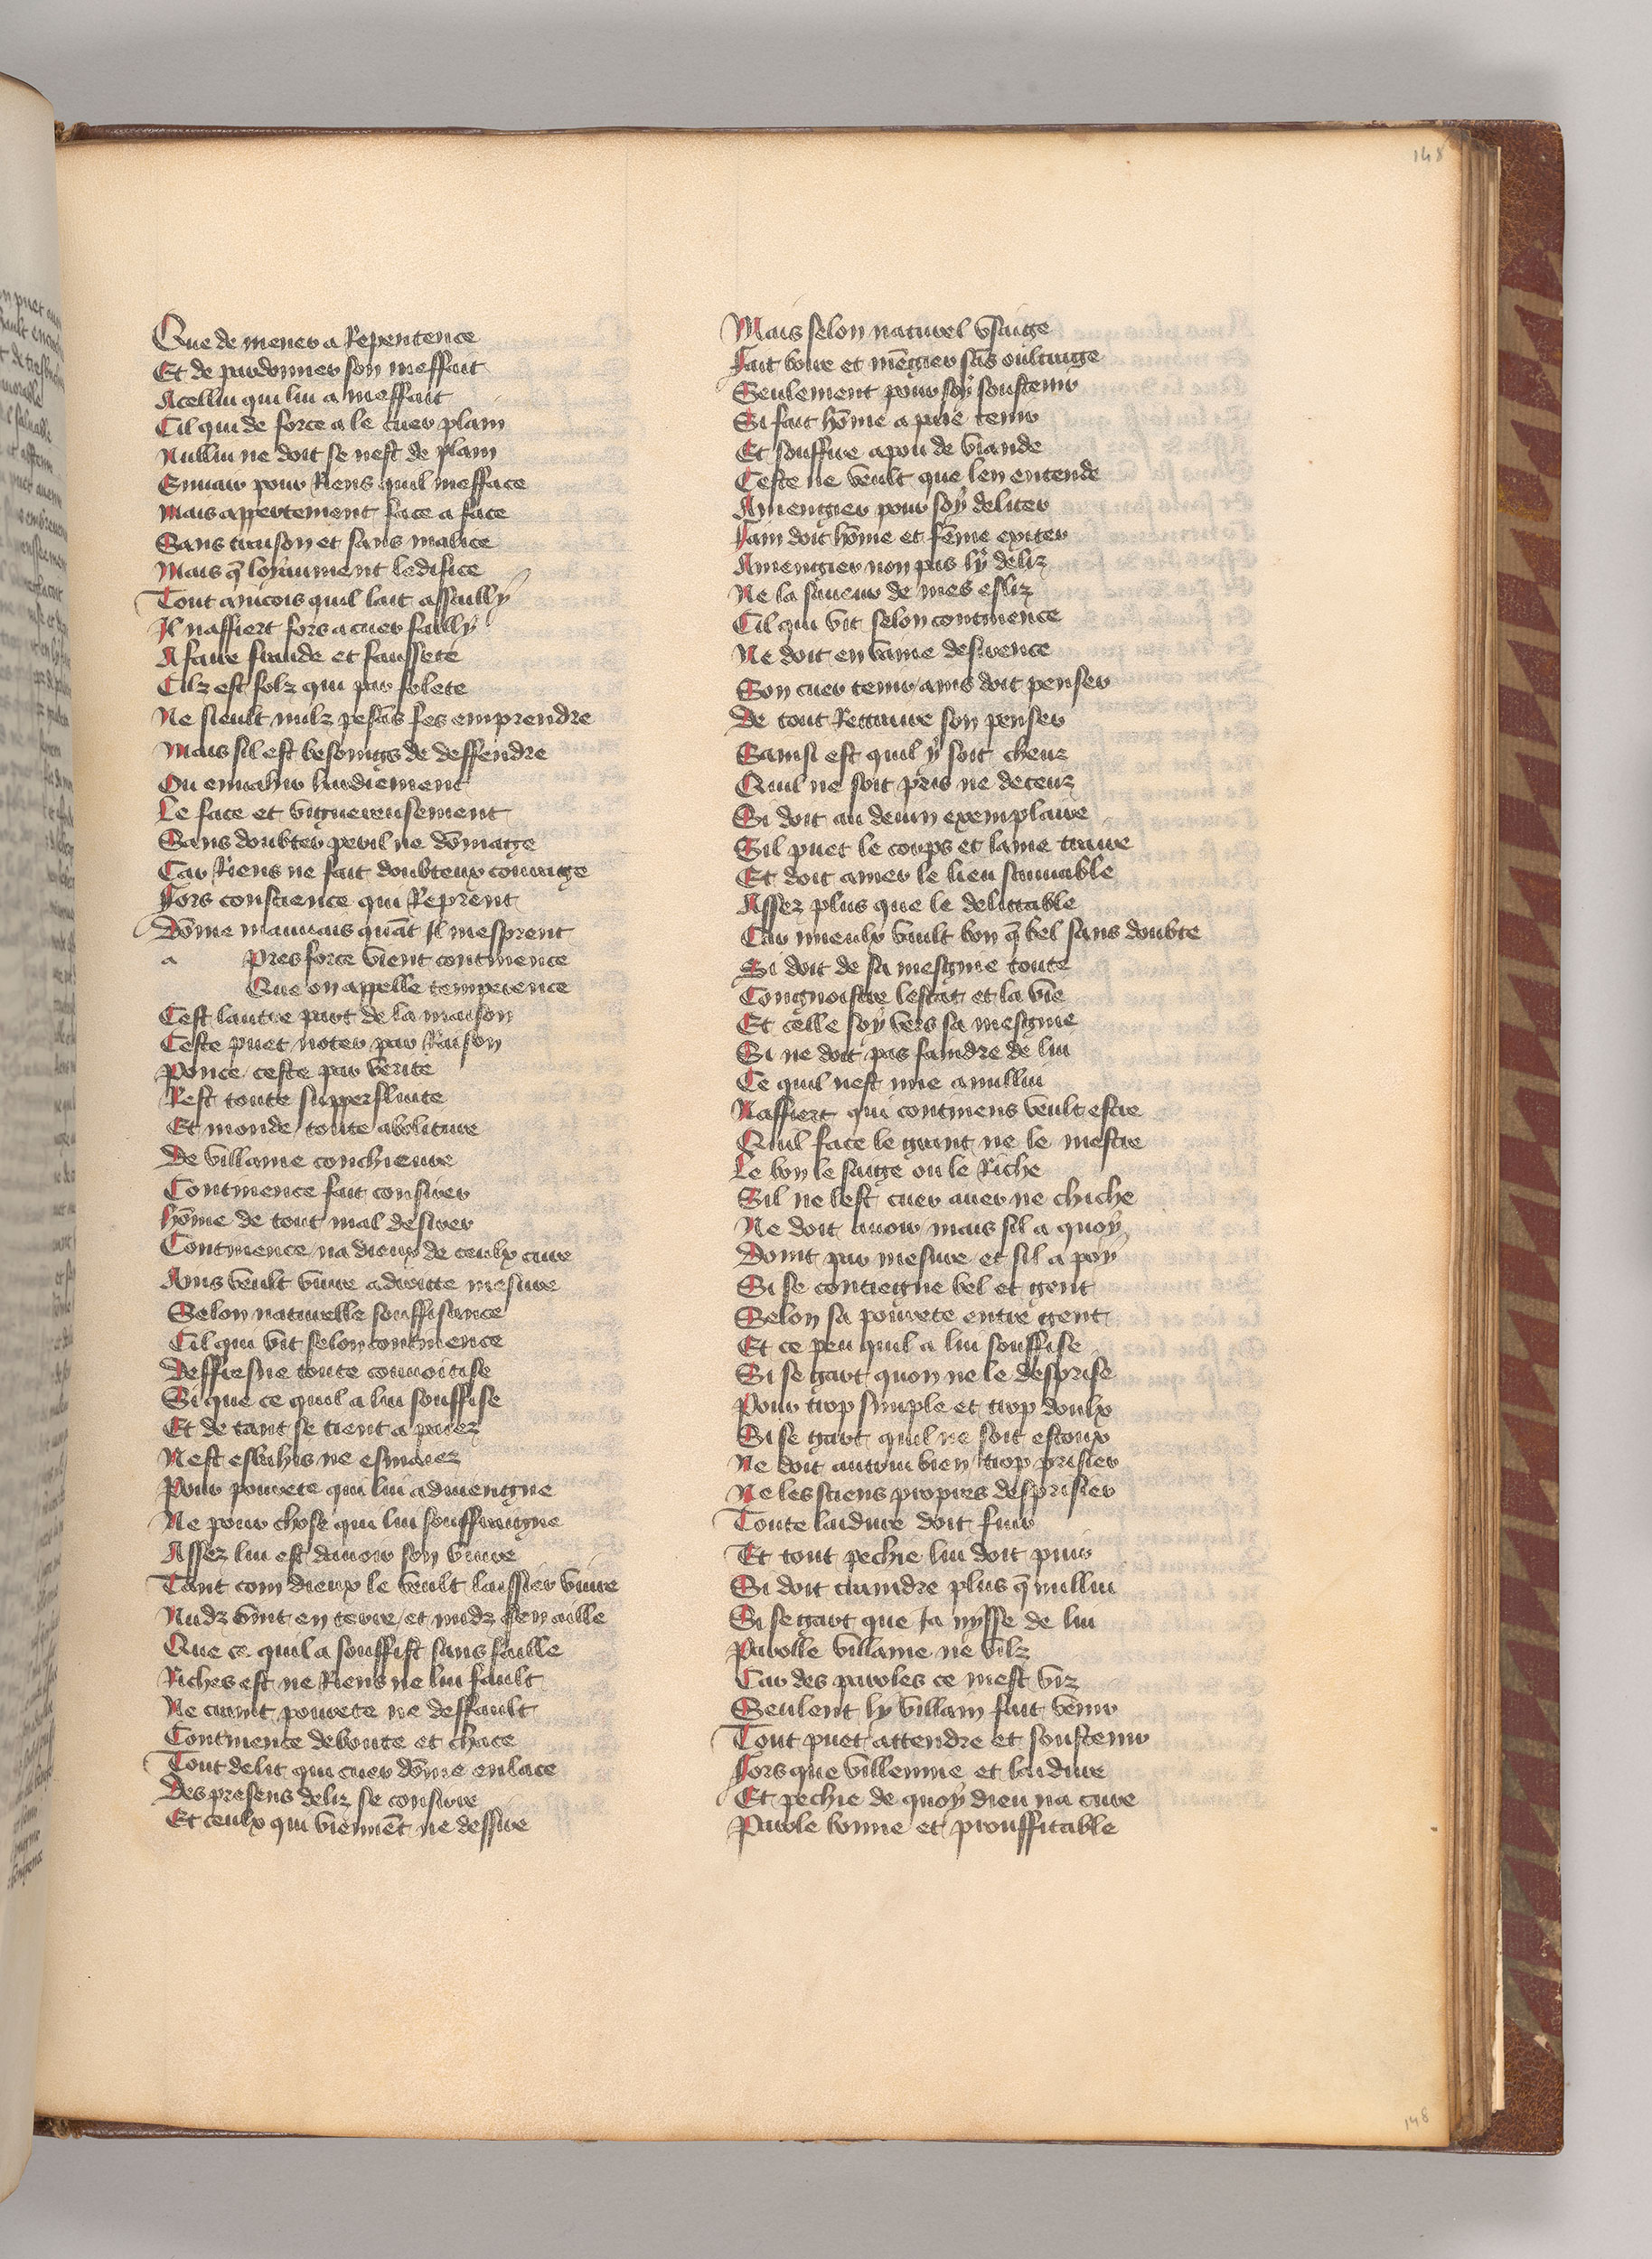 148
Que de mener a Repentence
Et de pardonner son meffait
Acellui qui lui a meffait
Cil qui de force a le cuer plain
Nullui ne doit se nest de plain
Enuair pour Riens quil mefface
Mais appertement face a face
Sans traison et sans malice
Mais q̄ loyaument ledifice
Tout aincois quil lait assailly
Il naffiert fors a cuer failly
A faire fraude et faussete
Cilz est folz qui par folete
Ne sieult nulz pesās fes emprendre
Mais sil est besoings de deffendre
Ou enuahir hardiement
Le face et viguereusement
Sans doubter peril ne dōmage
Car Riens ne fait doubteux courage
Fors conscience qui Reprent
Dōme mauuais quāt Il mesprent
a Pres force vient continence
Que on appelle temperence
Cest lautre part de la maison
Ceste puet noter par Raison
Ponce ceste par verite
Rest toute supperfluite
Et monde toute aboliture
De villanie conchieure
Continence fait consirer
hōme de tout mal desirer
Continence na dieux de ceulx cure
Ains veult viure a droitte mesure
Selon naturelle souffisance
Cil qui vit selon continence
Deffresne toute conuoitise
Si que ce quil a lui souffise
Et de tant se tient a paiez
Nest esbahis ne esmaiez
Pour pourete qui lui aduiengne
Ne pour chose qui lui souffraigne
Assez lui est dauoir son viure
Tant com dieux le veult laissier viure
Nudz vint en terre et nudz sen aille
Que ce quil a souffist sans faille
Riches est ne Riens ne lui fault
Ne craint pourete ne deffault
Continence deboute et chace
Tout delit qui cuer dōme enlace
Des presens deliz se consirre
Et ceulx qui viennēt ne dessire
Mais selon naturel vsaige
Fait boire et mēgier sās oultraige
Seulement pour soy soustenir
Si fait hōme a paie tenir
Et souffire a pou de viande
Ceste ne veult que len entende
Amengier pour soy deliter
Fain doit hōme et fēme exiter
Amengier non pas ly deliz
Ne la saueur de mes esliz
Cil qui vit selon continence
Ne doit en vaine desirence
Son cuer tenir ains doit penser
De tout Rettraire son penser
Sainsi est quil y soit cheuz
Quil ne soit pris ne deceuz
Si doit au deuin exemplaire
Sil puet le corps et lame traire
Et doit amer le lieu sauuable
Assez plus que le delittable
Car mieulx vault bon q̄ bel sans doubte
Si doit de sa mesgnie toute
Congnoistre lestat et la vie
Et celle soy vers sa mesgnie
Si ne doit pas faindre de lui
Ce quil nest mie a nullui
Naffiert qui continens veult estre
Quil face le grant ne le mestre
Le bon le saige ou le Riche
Sil ne lest cuer auer ne chiche
Ne doit auoir mais sil a quoy
Doint par mesure et sil a poy
Si se contiegne bel et gent
Selon sa pourete entre gent
Et ce peu quil a lui souffise
Si se gart quon ne le desprise
Pour trop simple et trop doulx
Si se gart quil ne soit estoux
Ne doit autrui bien trop prisier
Ne les siens propres desprisier
Toute laidure doit fuir
Et tout pechie lui doit puir
Si doit craindre plus q̄ nullui
Si se gart que Ia nysse de lui
Parolle villaine ne vilz
Car des paroles ce mest viz
Seulent ly villain fait venir
Tout puet attendre et soustenir
Fors que villennie et laidure
Et pechie de quoy dieu na cure
Parole bonne et prouffitable
148